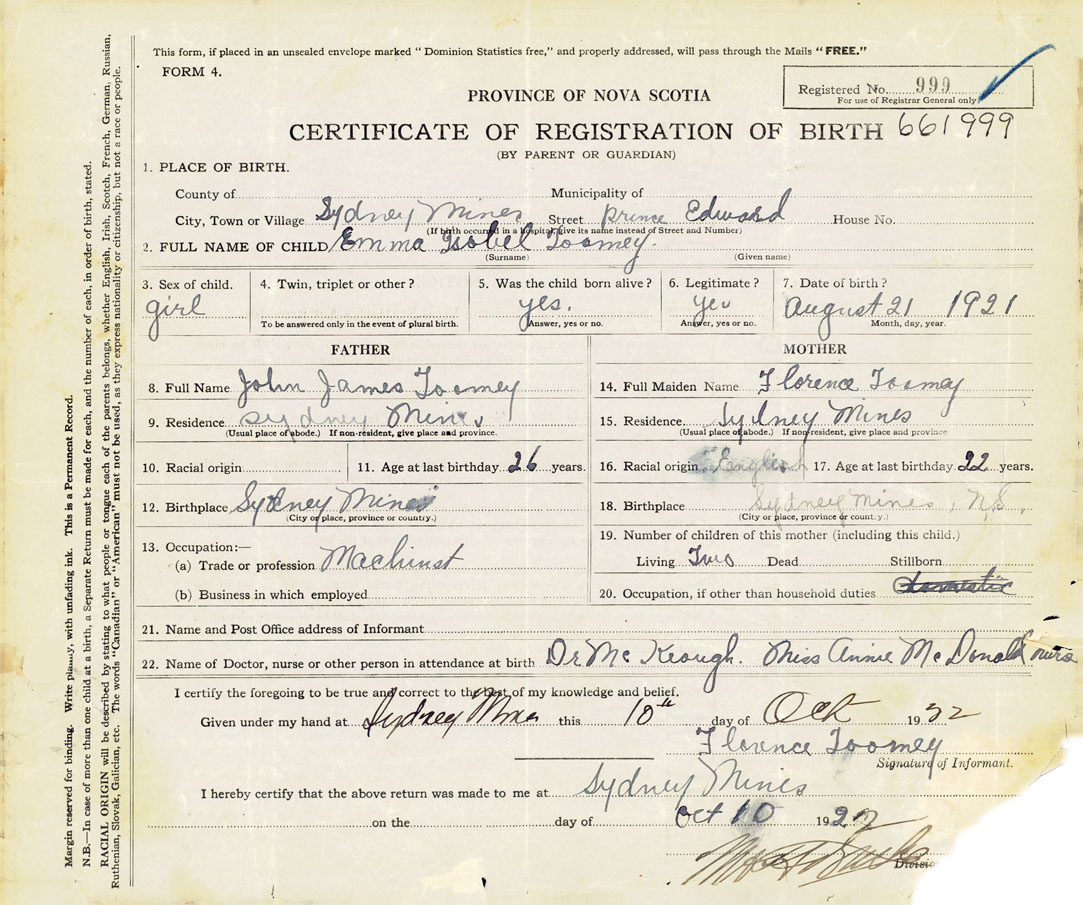 This form, if placed in an unsealed envelope marked " Dominion Statistics free," and properly addressed, will pass through the Mails " FREE."
FORM 4.
Registered No. 999
For use of Registrar General only.
PROVINCE OF NOVA SCOTIA
CERTIFICATE OF REGISTRATION OF BIRTH 661999
(BY PARENT OR GUARDIAN)
1. PLACE OF BIRTH.
County of Municipality of
City, Town or Village Sydney Mines Street Prince Edward House No.
(If birth occurred in a hospital, give its name instead of Street and Number)
2. FULL NAME OF CHILD Emma Isobel Toomey.
(Surname) (Given name)
3. Sex of child. 4. Twin, triplet or other? 5. Was the child born alive? 6. Legitimate? 7. Date of birth?
girl yes. yes August 21 1921
To be answered only in the event of plural birth. Answer, yes or no. Answer, yes or no. Month, day, year.
FATHER
8. Full Name John James Toomey
9. Residence Sydney Mines
(Usual place of abode.) If non-resident, give place and province.
10. Racial origin 11. Age at last birthday 26 years.
12. Birthplace Sydney Mines
(City or place, province or country.)
13. Occupation:—
(a) Trade or profession Machinist
(b) Business in which employed
MOTHER
14. Full Maiden Name Florence Toomey
15. Residence Sydney Mines
(Usual place of abode.) If non-resident, give place and province
16. Racial origin English 17. Age at last birthday 22 years.
18. Birthplace Sydney Mines, N,S,
(City or place, province or country.)
19. Number of children of this mother (including this child.)
Living Two Dead Stillborn
20. Occupation, if other than household duties domestic
21. Name and Post Office address of Informant
22. Name of Doctor, nurse or other person in attendance at birth Dr Mc Keough. Miss Annie McDonald nurse
I certify the foregoing to be true and correct to the best of my knowledge and belief.
Given under my hand at Sydney Mines this 10th day of Oct 1922
Florence Toomey
Signature of Informant.
I hereby certify that the above return was made to me at Sydney Mines
on the day of Oct 10 1922
Margin reserved for binding. Write plainly, with unfading ink. This is a Permanent Record.
N.B.—In case of more than one child at a birth, a Separate Return must be made for each, and the number of each, in order of birth, stated.
RACIAL ORIGIN will be described by stating to what people or tongue each of the parents belongs, whether English, Irish, Scotch, French, German, Russian,
Ruthenian, Slovak, Galician, etc. The words "Canadian" or "American" must not be used, as they express nationality or citizenship, but not a race or people.